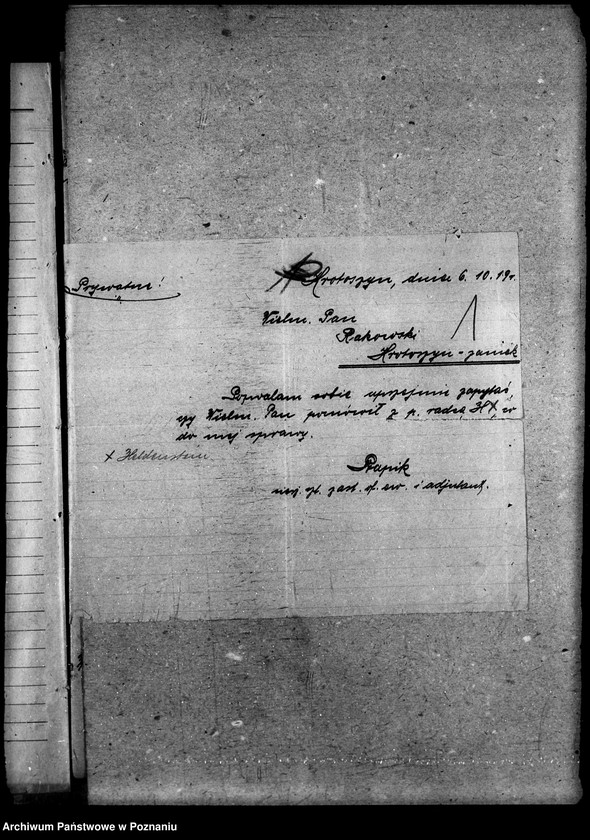 Prywatne!
Krotoszyn, dnia 6. 10. 19r.
Wielm. Pan
Rakowski
Krotoszyn-zamek
Pozwalam sobie uprzejmie zapytać
czy Wielm. Pan pomówił z p. radcą H+, co
do mej sprawy.
+ Heldenstein
i adjutant.
Archiwum Państwowe w Poznaniu